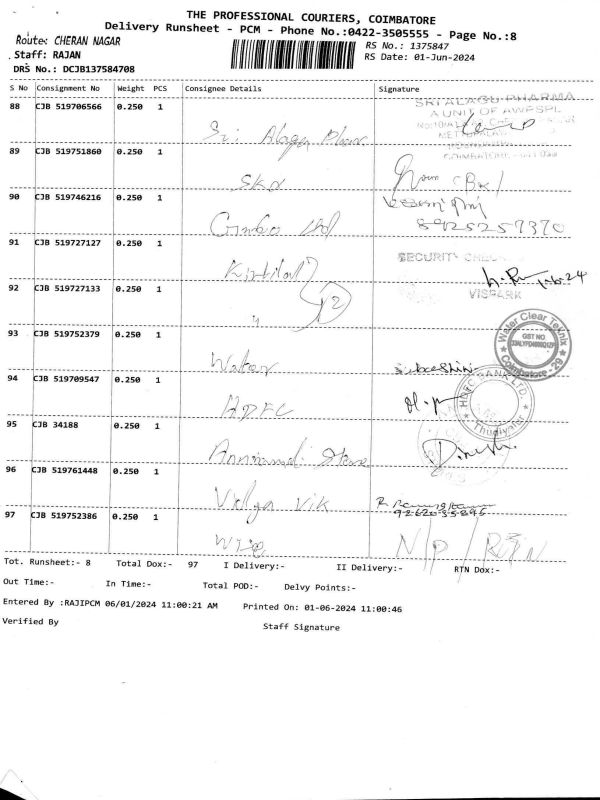 THE PROFESSIONAL COURIERS, COIMBATORE
Delivery Runsheet - PCM - Phone No.:0422-3505555 - Page No.:8
Route: CHERAN NAGAR
RS No.: 1375847
Staff: RAJAN
RS Date: 01-Jun-2024
DRS No.: DCJB137584708
S No Consignment No Weight PCS Consignee Details Signature
88 CJB 519706566 0.250 1
SRI ALAGU PHARMA
A UNIT OF AWPSPL
Sri Alagu
89 CJB 519751860 0.250 1
SKD
90 CJB 519746216 0.250 1
8925257370
91 CJB 519727127 0.250 1
SECURITY CHECK
92 CJB 519727133 0.250 1
2
VISPARK
93 CJB 519752379 0.250 1
Water Clear Teknix
GST NO
Coimbatore - 29
Water
94 CJB 519709547 0.250 1
HDFC BANK LTD.
Thudiyalur
HDFC
95 CJB 34188 0.250 1
Dinesh.
96 CJB 519761448 0.250 1
Vidya Vik
97 CJB 519752386 0.250 1
N/P / RTN
Tot. Runsheet:- 8 Total Dox:- 97 I Delivery:- II Delivery:- RTN Dox:-
Out Time:- In Time:- Total POD:- Delvy Points:-
Entered By :RAJIPCM 06/01/2024 11:00:21 AM Printed On: 01-06-2024 11:00:46
Verified By Staff Signature